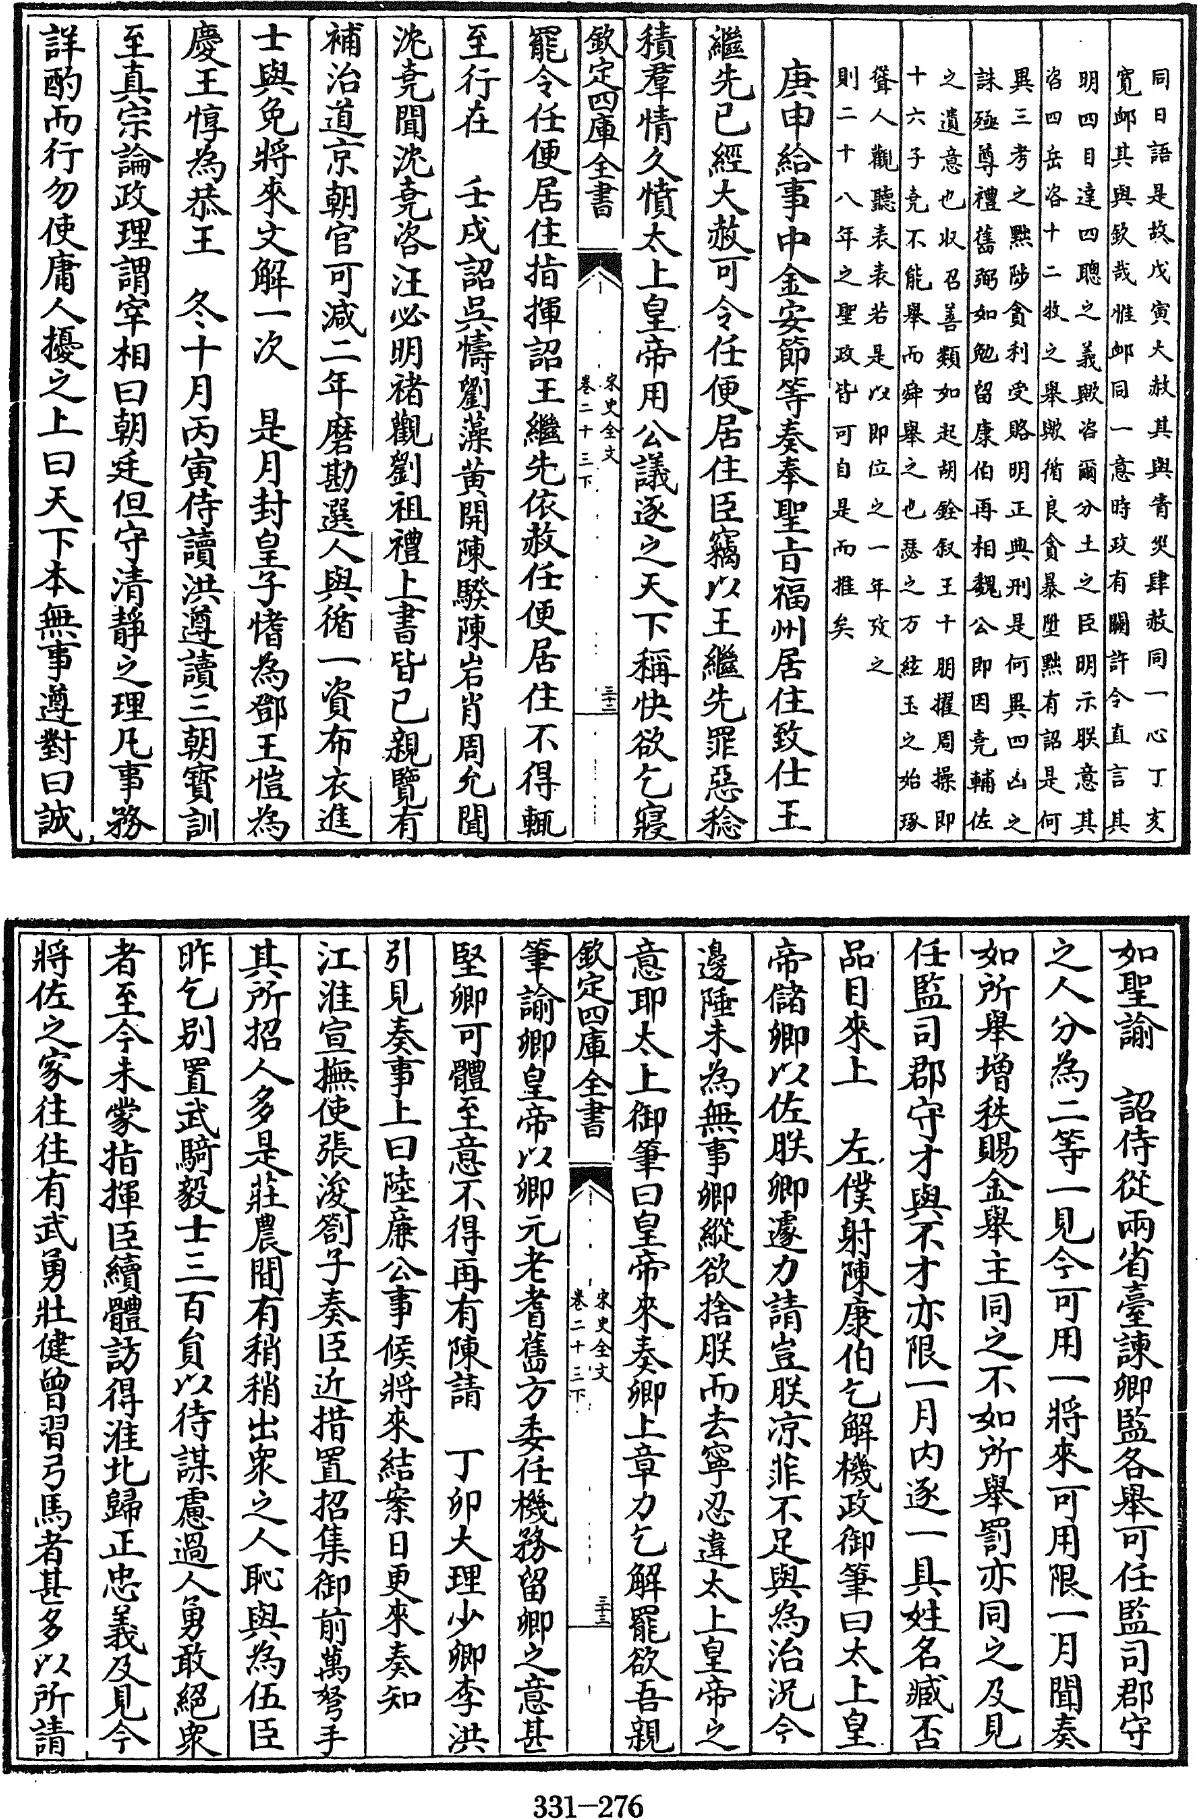 同日語是故戊寅大赦其與眚災肆赦同一心丁亥
寛邮其與欽哉惟邮同一意時政有闕許令直言其
明四目達四聰之義歟咨爾分土之臣明示朕意其
咨四岳咨十二牧之舉歟循良貪暴陞黜有詔是何
異三考之黜陟貪利受賂明正典刑是何異四凶之
誅殛尊禮舊弼如勉留康伯再相魏公即因堯輔佐
之遺意也収召善類如起胡銓叙王十朋擢周操即
十六子堯不能舉而舜舉之也瑟之方絃玉之始琢
聳人觀聽表表若是以即位之一年攷之
則二十八年之聖政皆可自是而推矣
庚申給事中金安節等奏奉聖旨福州居住致仕王
繼先已經大赦可令任便居住臣竊以王繼先罪惡稔
積羣情久憤太上皇帝用公議逐之天下稱快欲乞寢
欽定四庫全書 宋史全文 卷二十三下 三十二
罷令任便居住指揮詔王繼先依赦任便居住不得輒
至行在 壬戌詔吳儔劉藻黄開陳騤陳岩肖周允聞
沈堯聞沈堯咨汪必明褚觀劉祖禮上書皆已親覽有
補治道京朝官可減二年磨勘選人與循一資布衣進
士與免將來文解一次 是月封皇子愭為鄧王愷為
慶王惇為恭王 冬十月丙寅侍讀洪遵讀三朝寳訓
至真宗論政理謂宰相曰朝廷但守清靜之理凡事務
詳酌而行勿使庸人擾之上曰天下本無事遵對曰誠
如聖諭 詔侍從兩省臺諫卿監各舉可任監司郡守
之人分為二等一見今可用一將來可用限一月聞奏
如所舉增秩賜金舉主同之不如所舉罰亦同之及見
任監司郡守才與不才亦限一月内逐一具姓名臧否
品目來上 左僕射陳康伯乞解機政御筆曰太上皇
帝儲卿以佐朕卿遽力請豈朕凉菲不足與為治況今
邊陲未為無事卿縱欲捨朕而去寧忍違太上皇帝之
意耶太上御筆曰皇帝來奏卿上章力乞解罷欲吾親
欽定四庫全書 宋史全文 卷二十三下 三十三
筆諭卿皇帝以卿元老耆舊方委任機務留卿之意甚
堅卿可體至意不得再有陳請 丁卯大理少卿李洪
引見奏事上曰陸廉公事候將來結案日更來奏知
江淮宣撫使張浚劄子奏臣近措置招集御前萬弩手
其所招人多是莊農間有稍稍出衆之人恥與為伍臣
昨乞别置武騎毅士三百員以待謀慮過人勇敢絕衆
者至今未蒙指揮臣續體訪得淮北歸正忠義及見今
將佐之家往往有武勇壯健曾習弓馬者甚多以所請
331—276